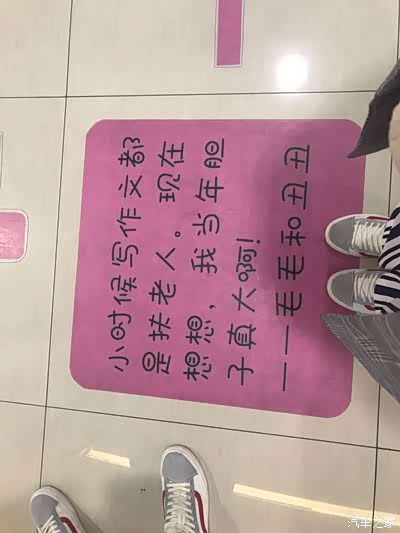 小时候写作文都
是扶老人。现在
想想，我当年胆
子真大啊!
——毛毛和丑丑
汽车之家